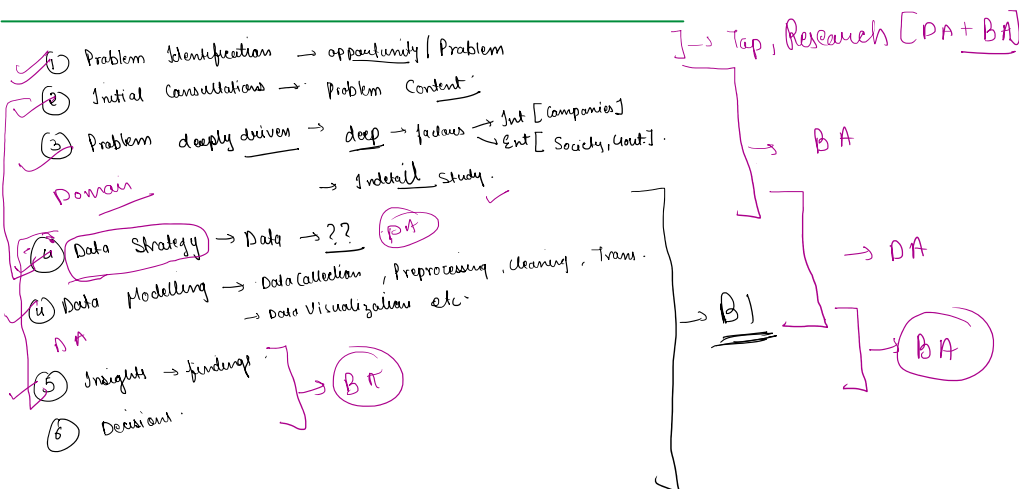 ① Problem Identification → opportunity / Problem
] → Top, Research [DA + BA]
② Initial Consultations → Problem Content.
③ Problem deeply driven → deep → factors → Int [Companies]
→ Ext [Society, Gout.]
→ BA
→ Indetail Study.
Domain
④ Data Strategy → Data → ??
DA
→ DA
④ Data Modelling → Data Collection, Preprocessing, Cleaning, Trans.
→ Data Visualization etc.
→ BI
DA
⑤ Insights → findings.
→ BA
→ BA
⑥ Decisions.